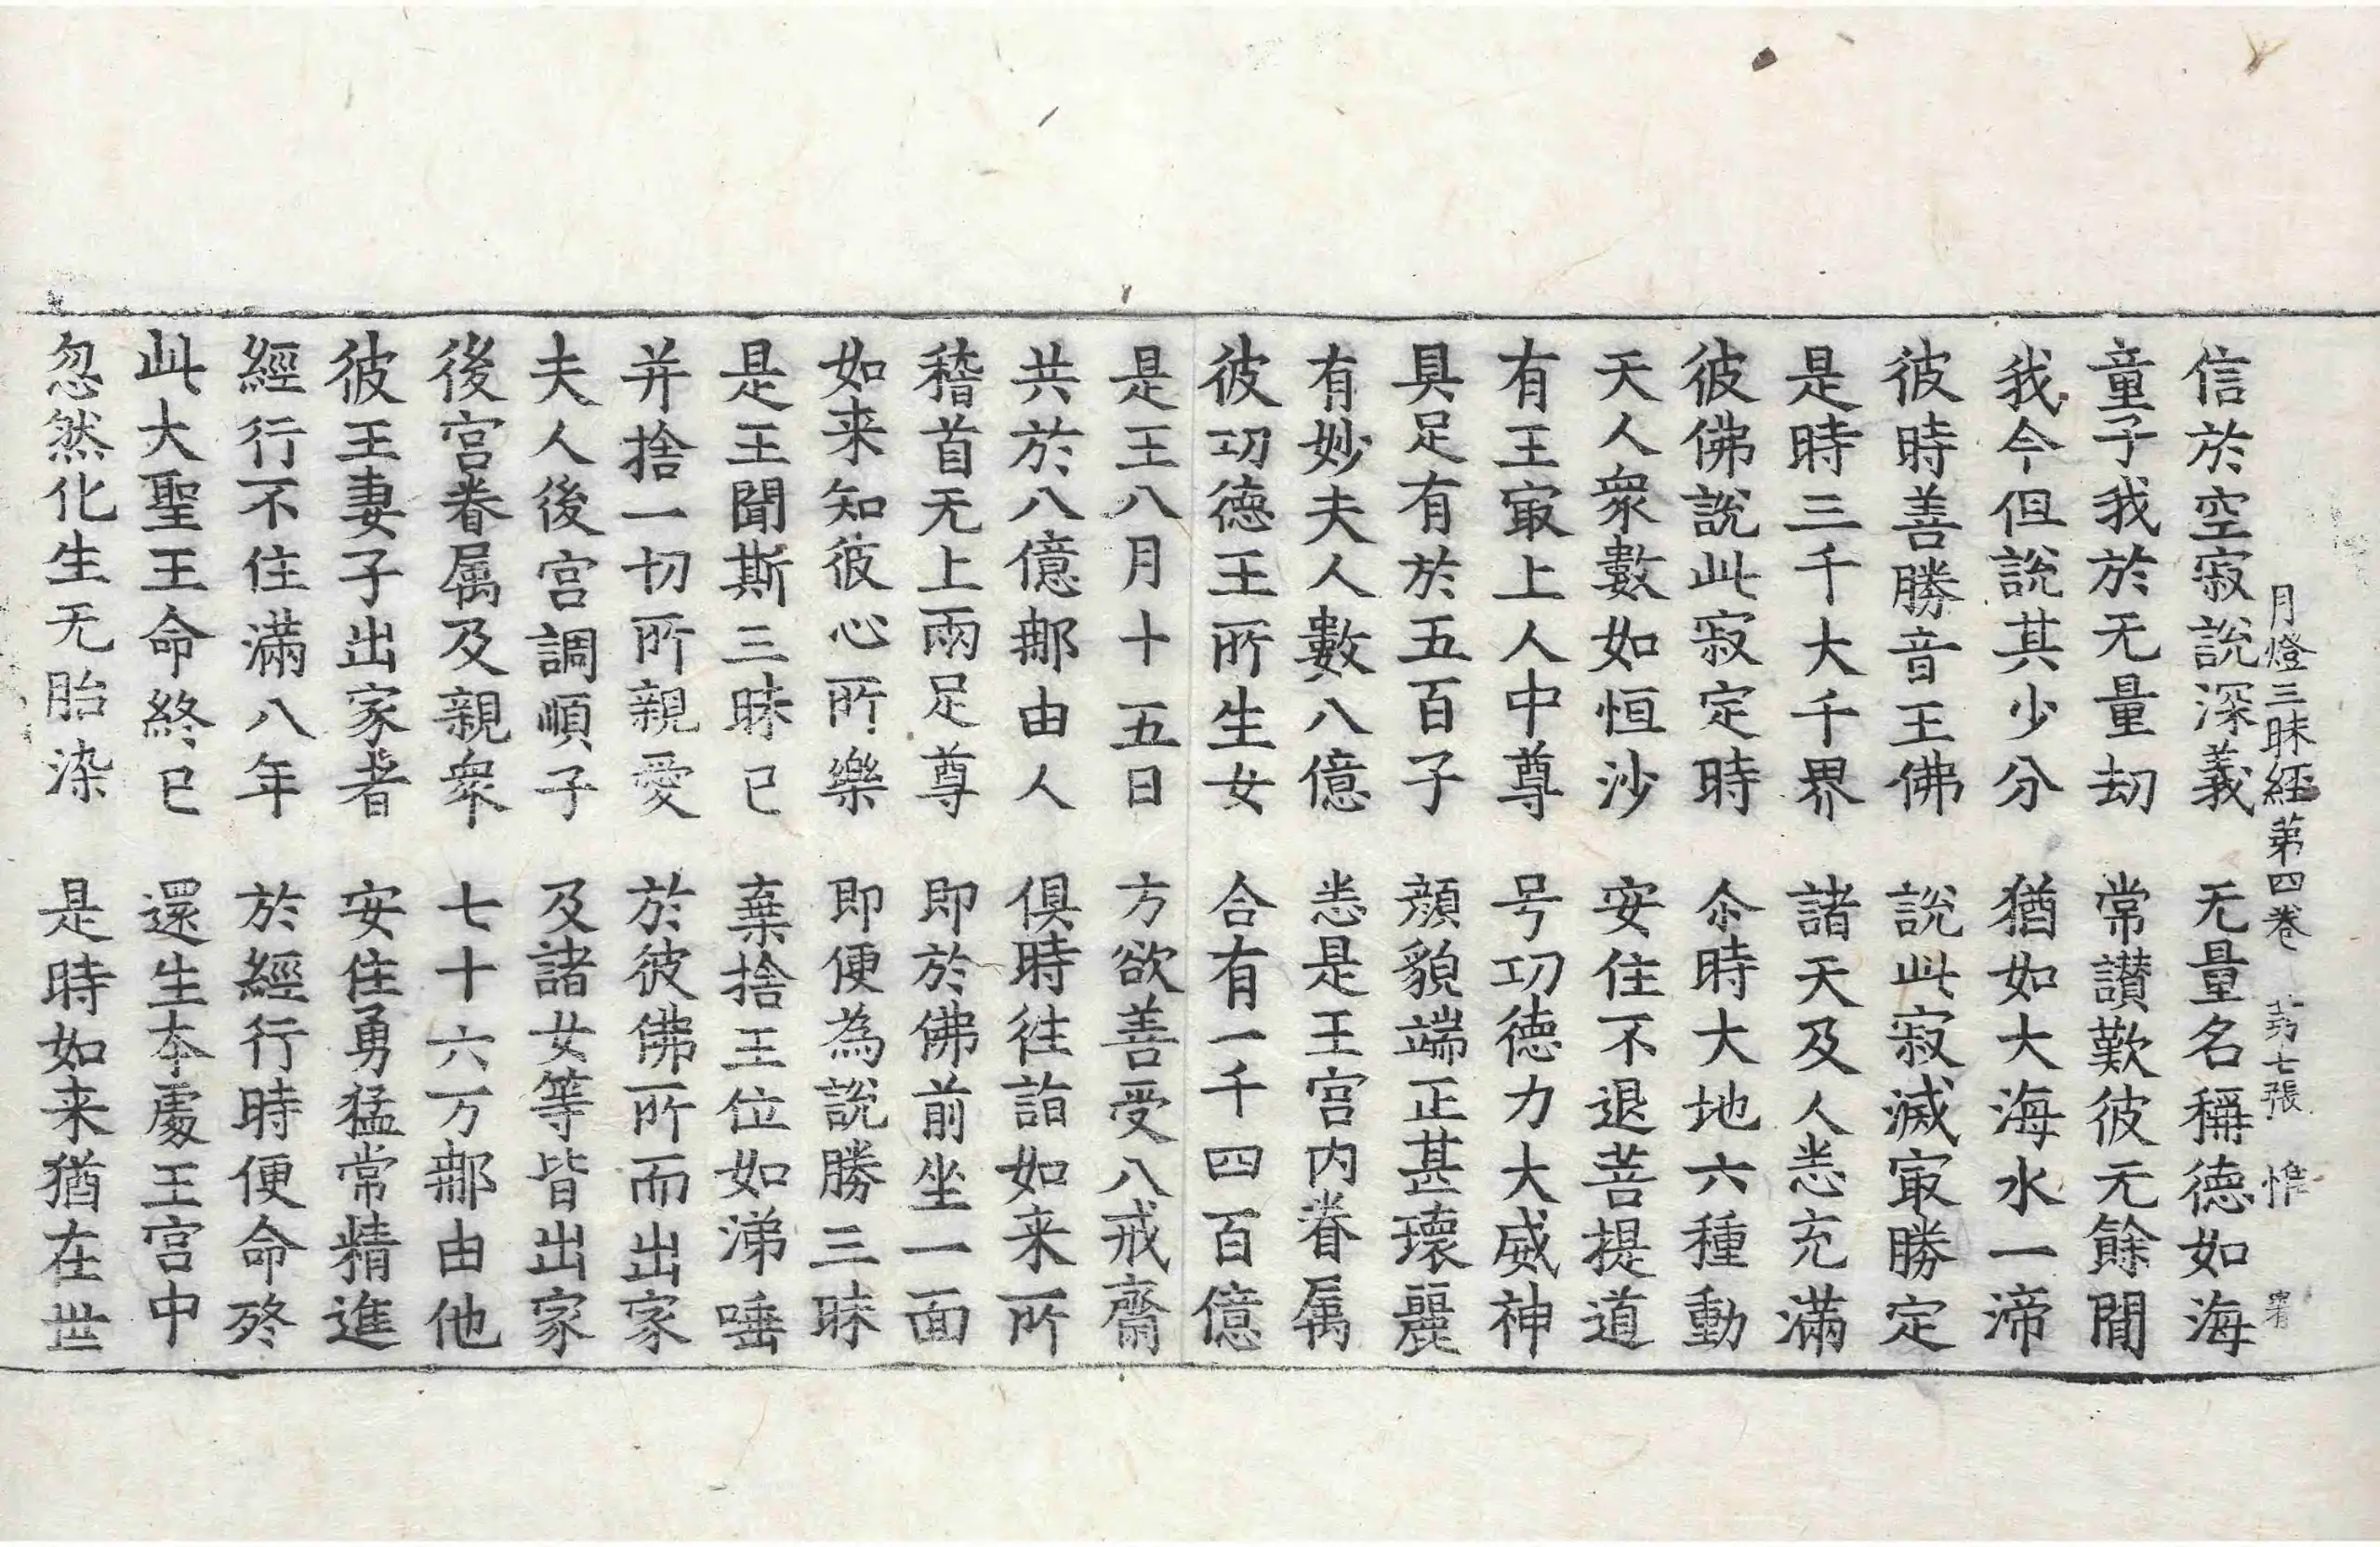 月燈三昧経第四巻 苐七張 惟
信於空寂說深義 无量名稱德如海
童子我於无量劫 常讃歎彼无餘閒
我今但說其少分 猶如大海水一渧
彼時善勝音王佛 說此寂滅㝡勝定
是時三千大千界 諸天及人悉充滿
彼佛說此寂定時 尒時大地六種動
天人衆數如恒沙 安住不退菩提道
有王㝡上人中尊 号功德力大威神
具足有於五百子 顔貌端正甚瓌麗
有妙夫人數八億 悉是王宫内眷属
彼功德王所生女 合有一千四百億
是王八月十五日 方欲善受八戒齋
共於八億那由人 俱時往詣如来所
稽首无上兩足尊 即於佛前坐一面
如来知彼心所樂 即便為說勝三昧
是王聞斯三昧已 棄捨王位如涕唾
并捨一切所親愛 於彼佛所而出家
夫人後宫調順子 及諸女等皆出家
後宫眷属及親衆 七十六万那由他
彼王妻子出家者 安住勇猛常精進
經行不住滿八年 於經行時便命終
此大聖王命終已 還生本處王宫中
忽然化生无胎染 是時如来猶在世